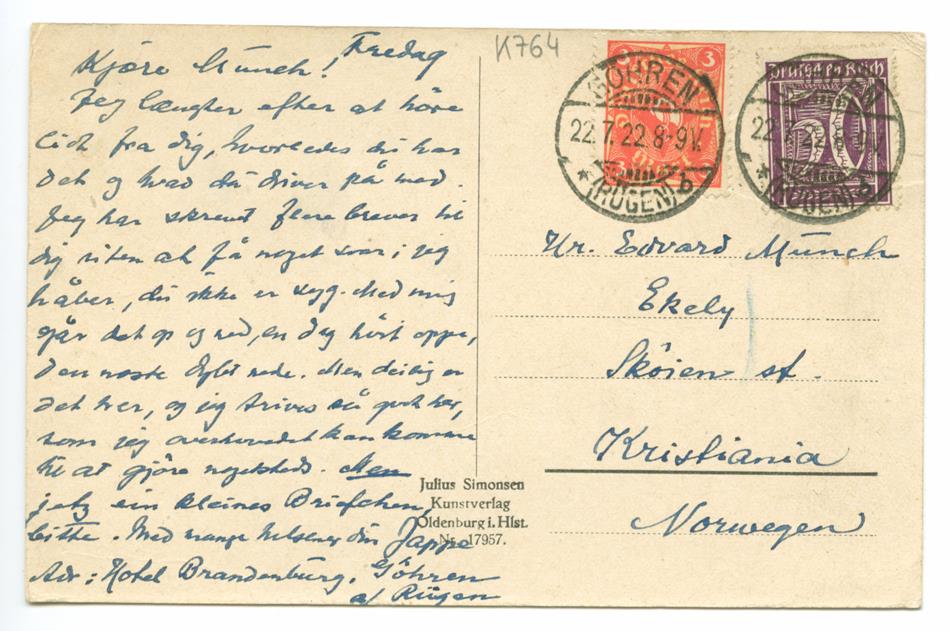 K764
Fredag
Kjære Munch!
Jeg længter efter at höre
lidt fra dig, hvorledes du har
det og hvad du driver på med.
Jeg har skrevet flere brever til
dig uten at få noget svar; jeg
håber, du ikke er syg. Med mig
går det op og ned, en dag höit oppe,
den næste dybt nede. Men deilig er
det her, og jeg trives så godt her,
som jeg overhovedet kan komme
til at gjöre nogetsteds. Men
jetz ein kleines Briefchen,
bitte. Med mange hilsener din Jappe
Adr: Hotel Brandenburg, Göhren
a/ Rügen
Julius Simonsen
Kunstverlag
Oldenburg i. Hlst.
Nr. 17957.
3 3
3 3
GÖHREN
22.7.22.8-9V.
* (RÜGEN) b
Deutsches Reich
50
22.7.22.8-9V.
* (RÜGEN) b
Hr. Edvard Munch
Ekely
Sköien st.
Kristiania
Norwegen